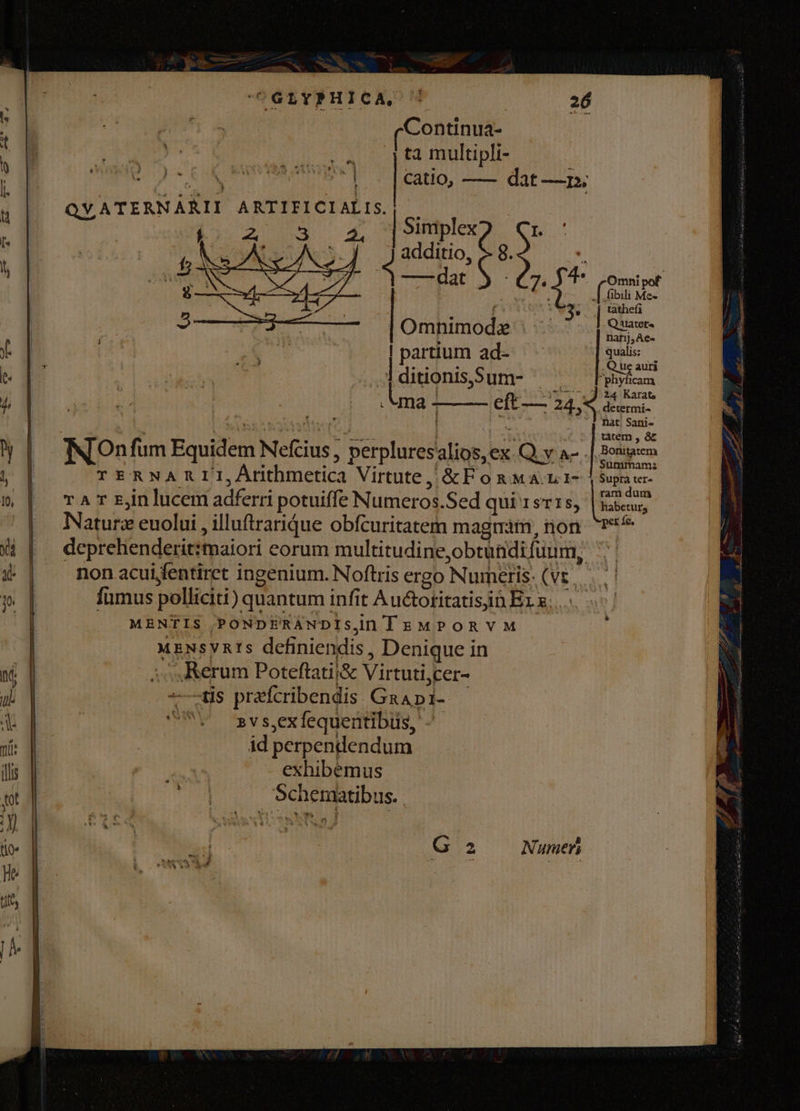 GLYPHICA. 26
Continua-
ta multipli-
catio, —— dat —12;
QVATERNARII ARTIFICIALIS.
4 2 3 2
Simplex
additio,
—dat
8.
1.
7.
4.
3.
Omnimodæ
partium ad-
ditionis,Sum-
ma —— eſt — 24,
Omni poſ
ſibili Me-
tatheſi
Quater-
narij, Ae-
qualis:
Que auri
phyſicam
24 Karat.
determi-
nat Sani-
tatem, &
Bonitatem
Summam:
Supra ter-
ram dum
habetur,
per ſe.
NOn ſum Equidem Neſcius, perplures alios, ex QVA-
TERNARII, Arithmetica Virtute, & FORMALI-
TATE, in lucem adferri potuiſſe Numeros. Sed qui ISTIS,
Naturæ euolui, illuſtrarique obſcuritatem magnam, non
deprehenderit: maiori eorum multitudine, obtundi ſuum,
non acui, ſentiret ingenium. Noſtris ergo Numeris. (vt
ſumus polliciti) quantum inſit Auctoritatis, in ELE.
MENTIS PONDERANDIS, in TEMPORVM
MENSVRIS definiendis, Denique in
Rerum Poteſtati, & Virtuti, cer-
tis præſcribendis GRADI-
BVS, ex ſequentibus,
id perpendendum
exhibemus
Schematibus.
G 2 Numeri